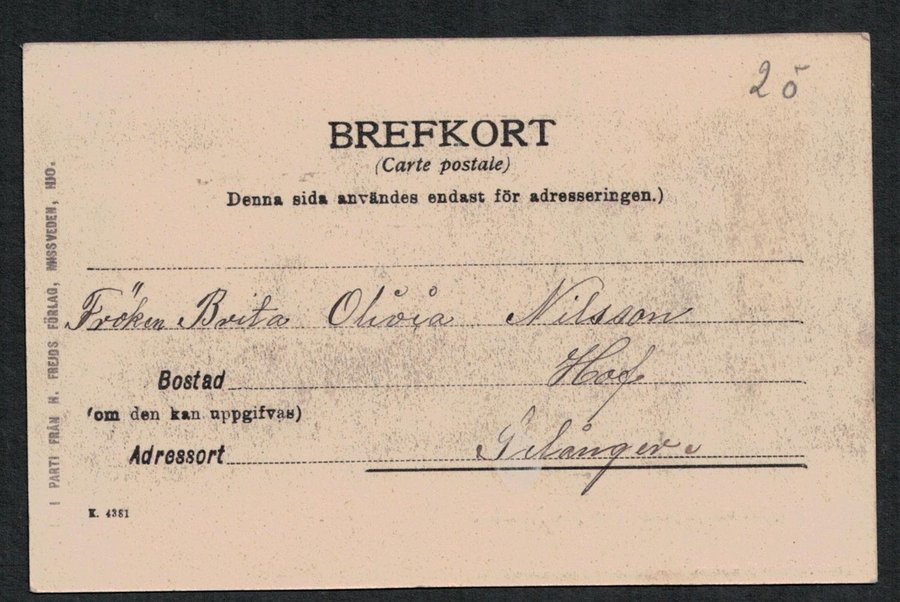 25
BREFKORT
(Carte postale)
Denna sida användes endast för adresseringen.)
Fröken Brita Olivia Nilsson
Bostad Hof
(om den kan uppgifvas)
Adressort Selånger
K. 4381
I PARTI FRÅN N. FREJDS FÖRLAG, MISSVEDEN, HJO.